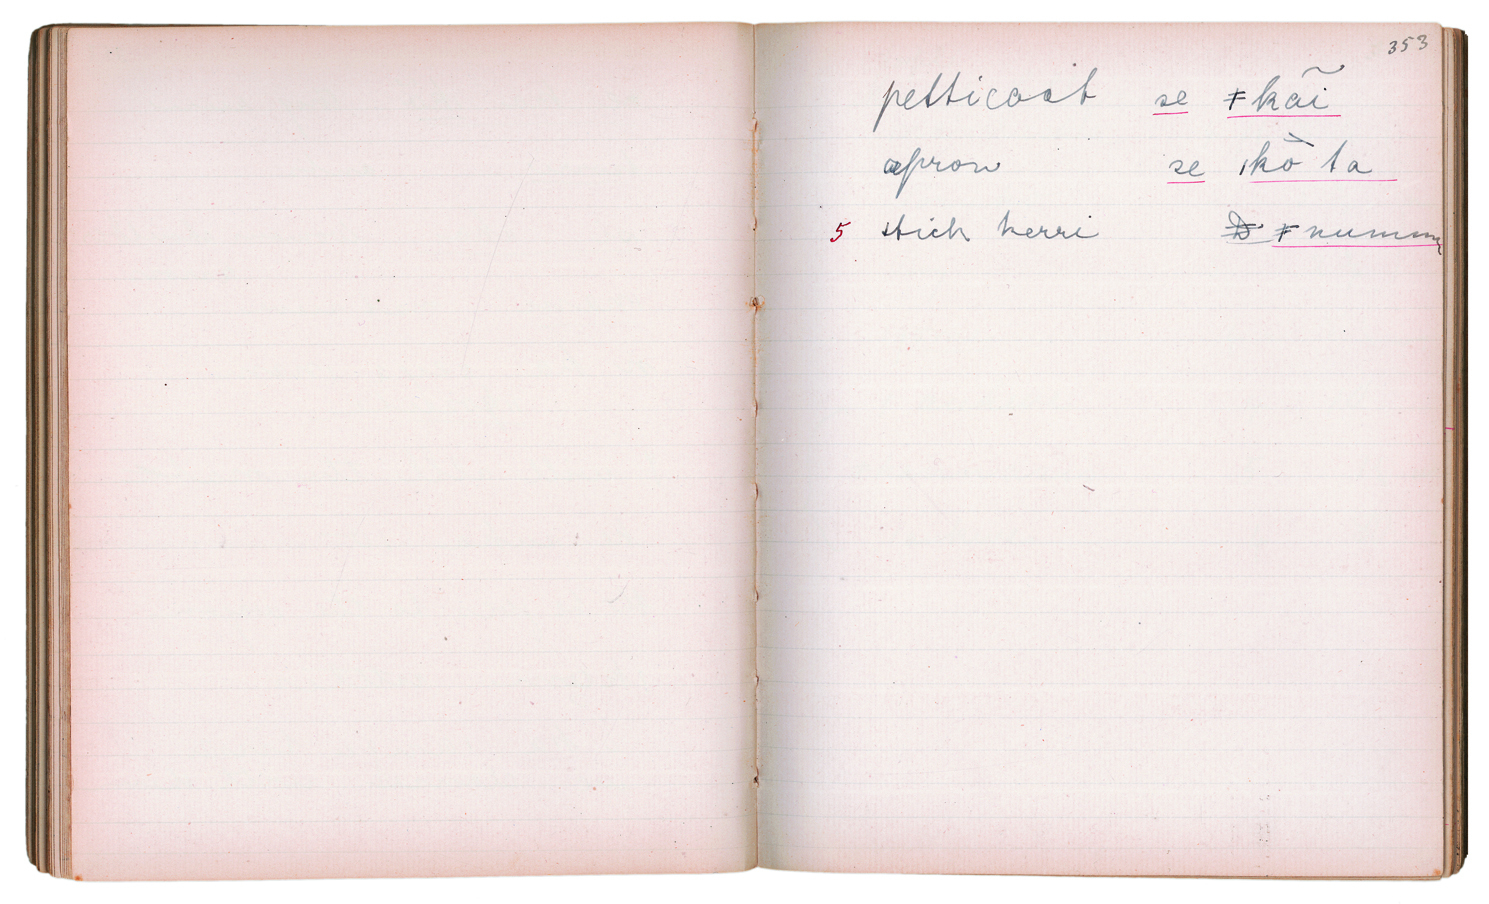 353
petticoat se ǂkãi
apron se ǀkò ta
5 stick kerri ǂnumm